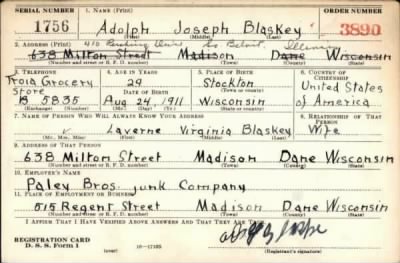 SERIAL NUMBER 1. NAME (Print) ORDER NUMBER
1756 Adolph Joseph Blaskey 3890
(First) (Middle) (Last)
2. ADDRESS (Print) 410 Ave So Beloit, Illinois
638 Milton Street Madison Dane Wisconsin
(Number and street or R. F. D. number) (Town) (County) (State)
3. TELEPHONE 4. AGE IN YEARS 5. PLACE OF BIRTH 6. COUNTRY OF CITIZENSHIP
Troia Grocery Store 29 Stockton United States
B 5835 Aug 24, 1911 Wisconsin of America
(Exchange) (Number) (Mo.) (Day) (Yr.) (State or country)
7. NAME OF PERSON WHO WILL ALWAYS KNOW YOUR ADDRESS 8. RELATIONSHIP OF THAT PERSON
Laverne Virginia Blaskey Wife
(Mr., Mrs., Miss) (First) (Middle) (Last)
9. ADDRESS OF THAT PERSON
638 Milton Street Madison Dane Wisconsin
(Number and street or R. F. D. number) (Town) (County) (State)
10. EMPLOYER'S NAME
Paley Bros. Junk Company
11. PLACE OF EMPLOYMENT OR BUSINESS
515 Regent Street Madison Dane Wisconsin
(Number and street or R. F. D. number) (Town) (County) (State)
I AFFIRM THAT I HAVE VERIFIED ABOVE ANSWERS AND THAT THEY ARE TRUE.
REGISTRATION CARD
D. S. S. Form 1 16—17105 (Registrant's signature)